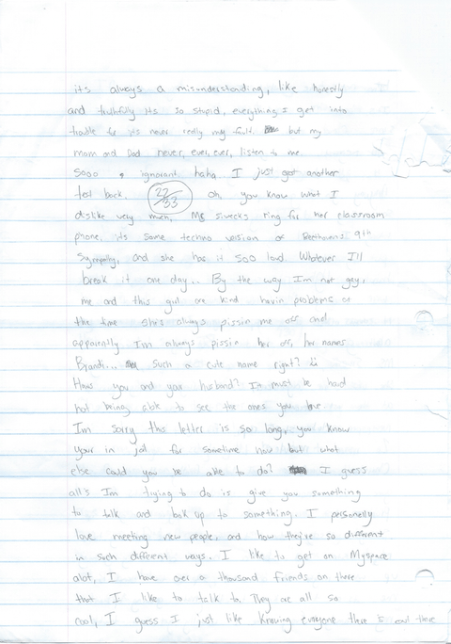 its always a misunderstanding, like honestly
and truthfully its so stupid, everything I get into
trouble for its never really my fult. but my
mom and Dad never, ever, ever, listen to me
sooo ignorant haha, I just got another
test back. 22/33 Oh, you know what I
dislike very much, Ms ring for her classroom
phone, its some techno version of 9th
Sympathy, and she has it soo loud Whatever I'll
break it one day.. By the way I'm not gay,
me and this gurl are kind havin problems or
the time she's always pissin me off and
apparently I'm always pissin her off, her names
Brandi... such a cute name right? :)
Hows you and your husband? It must be hard
not being able to see the ones you love
I'm sorry this letter is so long, you know
your in jail for sometime now but what
else could you be able to do? I guess
all's I'm trying to do is give you something
to talk and look up to something. I personally
love meeting new people, and how they're so different
in such different ways. I like to get on Myspace
alot, I have over a thousand friends on there
that I like to talk to They are all so
cool, I guess I just like knowing everyone that is out there